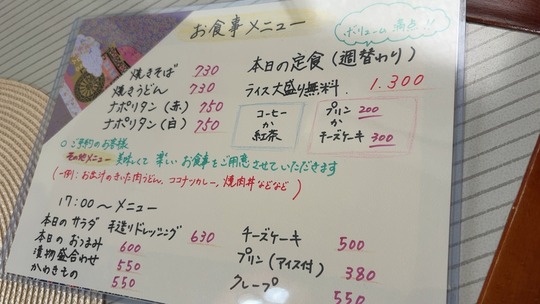 お食事メニュー
ボリューム満点!!
焼きそば 730
焼きうどん 730
ナポリタン(赤) 750
ナポリタン(白) 750
本日の定食(週替わり)
ライス大盛り無料. 1.300
コーヒー
か
紅茶
プリン 200
か
チーズケーキ 300
○ ご予約のお客様
その他メニュー 美味しくて 楽しいお食事をご用意させていただきます
(一例: お出汁のきいた肉うどん、ココナツカレー、焼肉丼などなど)
17:00〜メニュー
本日のサラダ 手造りドレッシング 630
本日のおつまみ 600
漬物盛合わせ 550
かわきもの 550
チーズケーキ 500
プリン(アイス付) 380
クレープ 550